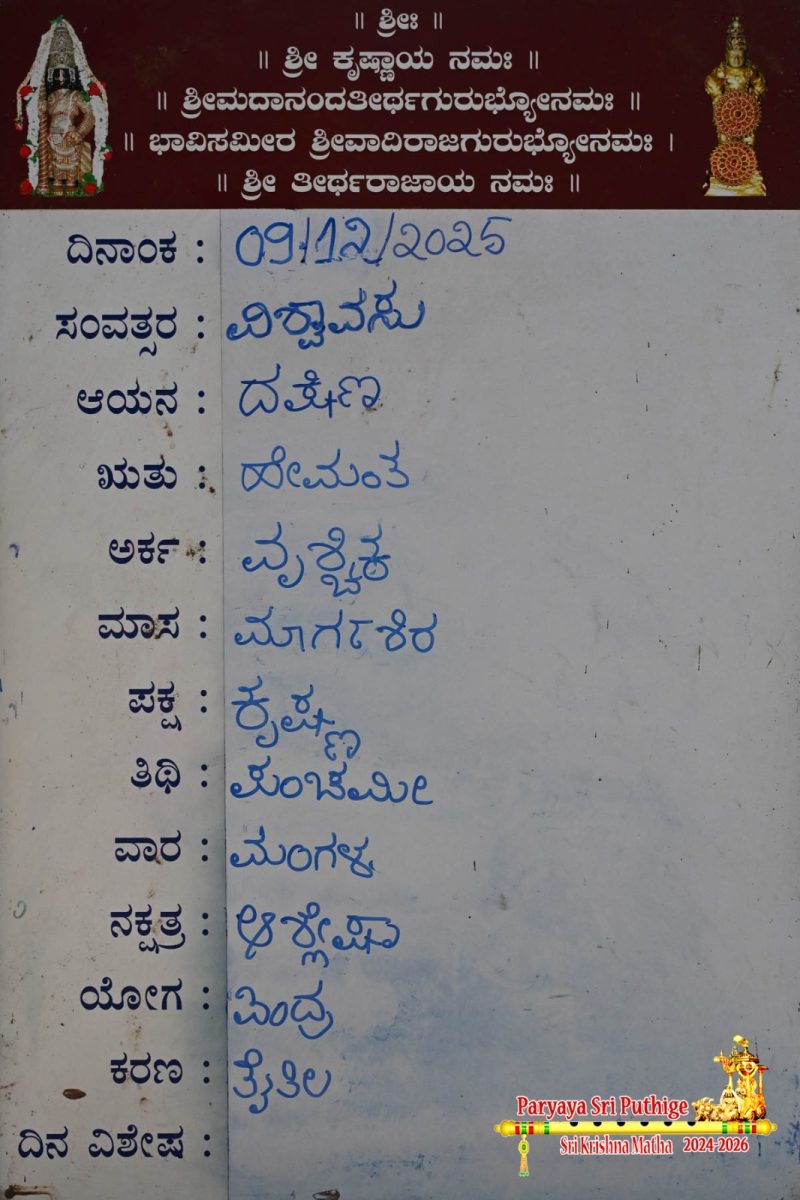 ॥ ಶ್ರೀಃ ॥
॥ ಶ್ರೀ ಕೃಷ್ಣಾಯ ನಮಃ ॥
॥ ಶ್ರೀಮದಾನಂದತೀರ್ಥಗುರುಭ್ಯೋನಮಃ ॥
॥ ಭಾವಿಸಮೀರ ಶ್ರೀವಾದಿರಾಜಗುರುಭ್ಯೋನಮಃ ।
॥ ಶ್ರೀ ತೀರ್ಥರಾಜಾಯ ನಮಃ ॥
ದಿನಾಂಕ : 09/12/2025
ಸಂವತ್ಸರ : ವಿಶ್ವಾವಸು
ಆಯನ : ದಕ್ಷಿಣ
ಋತು : ಹೇಮಂತ
ಅರ್ಕ : ವೃಶ್ಚಿಕ
ಮಾಸ : ಮಾರ್ಗಶಿರ
ಪಕ್ಷ : ಕೃಷ್ಣ
ತಿಥಿ : ಪಂಚಮೀ
ವಾರ : ಮಂಗಳ
ನಕ್ಷತ್ರ : ಆಶ್ಲೇಷಾ
ಯೋಗ : ಐಂದ್ರ
ಕರಣ : ತೈತಿಲ
ದಿನ ವಿಶೇಷ :
Paryaya Sri Puthige
Sri Krishna Matha 2024-2026